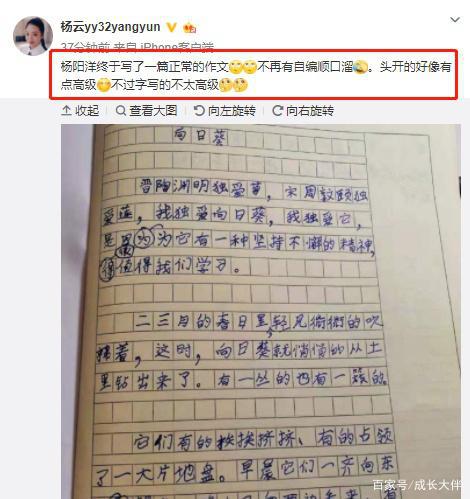 杨云yy32yangyun
37分钟前 来自 iPhone客户端
杨阳洋终于写了一篇正常的作文不再有自编顺口溜。头开的好像有
点高级不过字写的不太高级
收起 查看大图 向左旋转 向右旋转
向日葵
晋陶渊明独爱菊,宋周敦颐独
爱莲,我独爱向日葵,我独爱它,
是因为它有一种坚持不懈的精神,
值得我们学习。
二三月的春日里,轻风的吹
着,这时,向日葵就悄悄的从土
里钻出来了。有一丛的也有一簇的。
它们有的挨挨挤挤、有的占领
了一大片地盘。早晨它们一齐向东
百家号/成长大伴